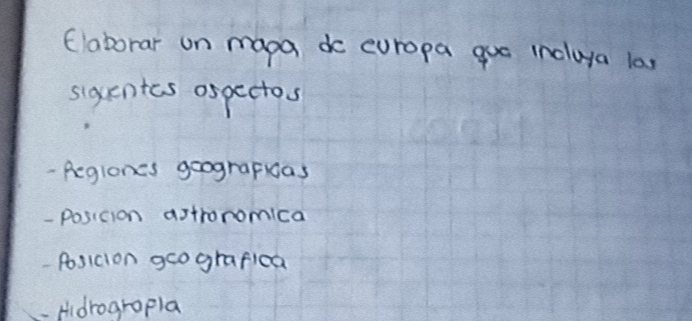 Elaborar un mapa de europa que incluya las
siguentes aspectos
- Regiones geograficas
- Posicion astronomica
- Posicion geografica
- Hidrogropia